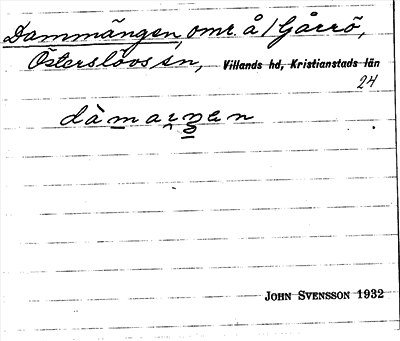 Dammängen, omr. å/Gårrö,
Österslövs sn, Villands hd, Kristianstads län
24
JOHN SVENSSON 1932